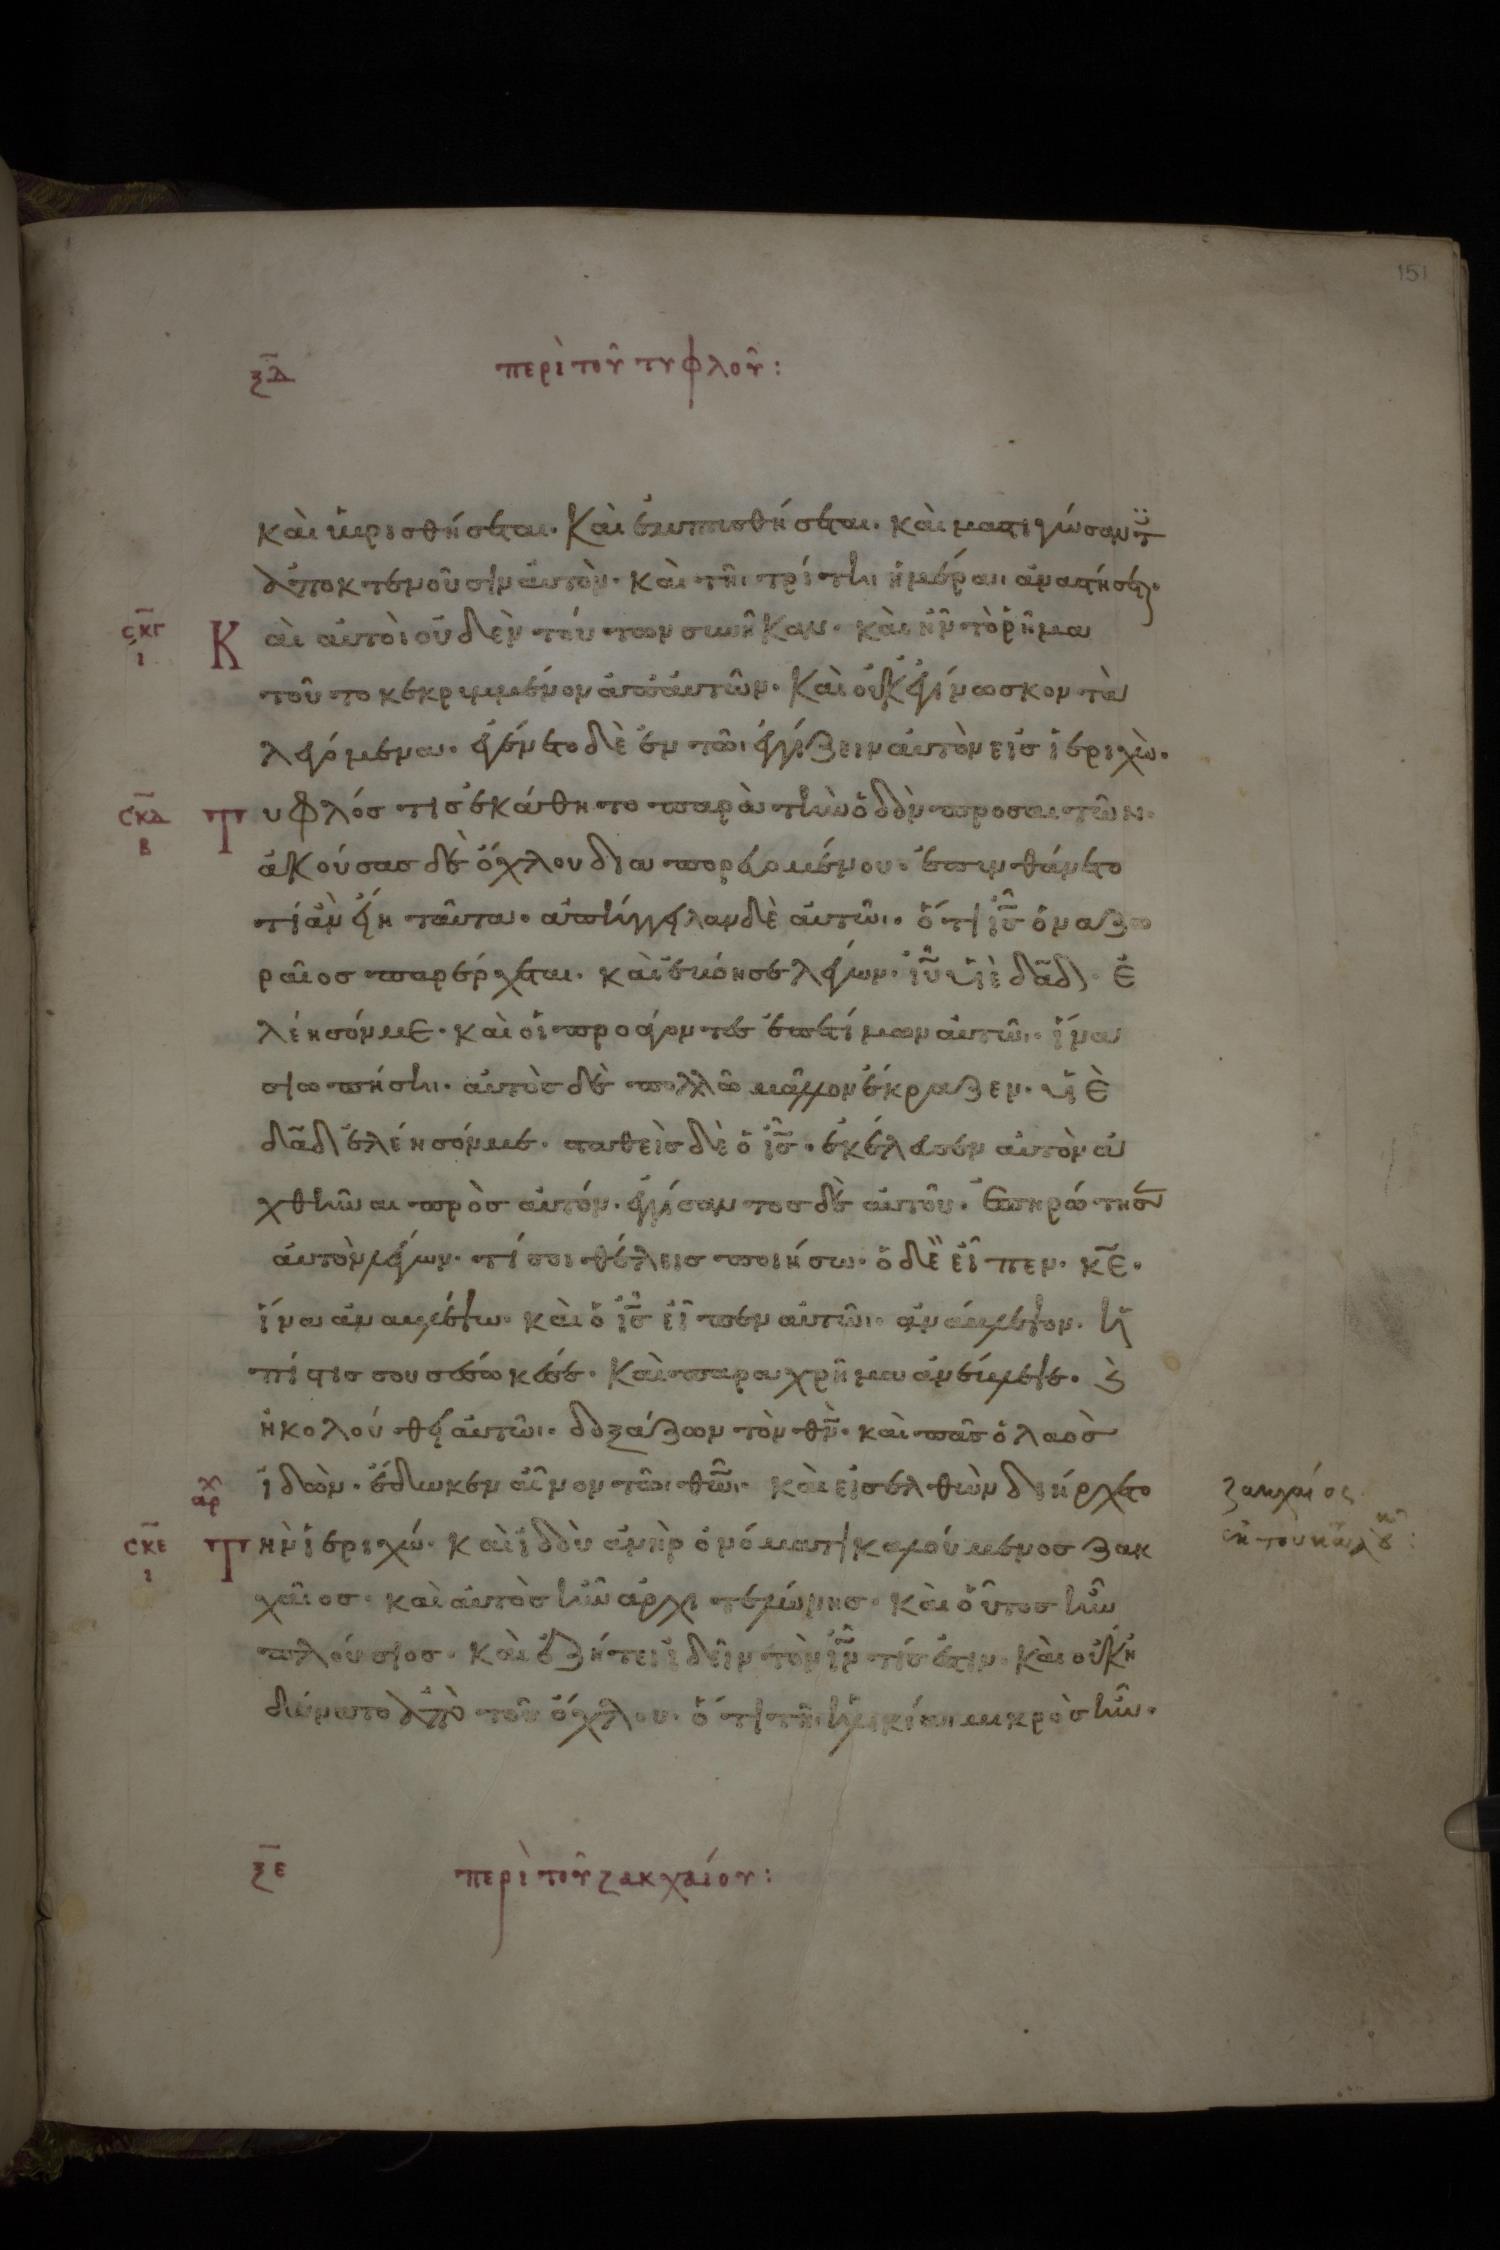 151
ξδ περὶ τοῦ τυφλοῦ:
καὶ ὑβρισθήσεται. καὶ ἐμπτυσθήσεται. καὶ μαστιγώσαντ
ἀποκτενοῦσιν αὐτὸν. καὶ τῆι τρίτηι ἡμέραι ἀναστήσεται.
σκγ ι Καὶ αὐτοὶ οὐδὲν τούτων συνῆκαν. καὶ ἦν τὸ ῥῆμα
τοῦτο κεκρυμμένον ἀπ' αὐτῶν. καὶ οὐκ ἐγίνωσκον τὰ
λεγόμενα. ἐγένετο δὲ ἐν τῶι ἐγγίζειν αὐτὸν εἰς ἱεριχὼ.
σκδ β Τυφλός τις ἐκάθητο παρὰ τὴν ὁδὸν προσαιτῶν.
ἀκούσας δὲ ὄχλου διαπορευομένου. ἐπυνθάνετο
τί ἂν εἴη ταῦτα. ἀπήγγειλαν δὲ αὐτῶι. ὅτι ις ὁ ναζω
ραῖος παρέρχεται. καὶ ἐβόησε λέγων. ιυ υἱὲ δαδ. ἐ
λέησόν με. καὶ οἱ προάγοντες ἐπετίμων αὐτῶι. ἵνα
σιωπήσηι. αὐτὸς δὲ πολλῶ μᾶλλον ἔκραζεν. υἱὲ
δαδ ἐλέησόν με. σταθεὶς δὲ ὁ ις. ἐκέλευσεν αὐτὸν ἀ
χθῆναι πρὸς αὐτόν. ἐγγίσαντος δὲ αὐτοῦ. ἐπηρώτησεν
αὐτὸν λέγων. τί σοι θέλεις ποιήσω. ὁ δὲ εἶπεν. κε.
ἵνα ἀναβλέψω. καὶ ὁ ις εἶπεν αὐτῶι. ἀνάβλεψον. ἡ
πίστις σου σέσωκέ σε. καὶ παραχρῆμα ἀνέβλεψε. καὶ
ἠκολούθει αὐτῶι. δοξάζων τὸν θν. καὶ πᾶς ὁ λαὸς
αρχ ἰδὼν. ἔδωκεν αἶνον τῶι θω. καὶ εἰσελθὼν διήρχετο
ζακχαίος
σκε ι Τὴν ἱεριχώ. καὶ ἰδοὺ ἀνὴρ ὀνόματι καλούμενος ζακ
χαῖος. καὶ αὐτὸς ἦν ἀρχιτελώνης. καὶ οὗτος ἦν
πλούσιος. καὶ ἐζήτει ἰδεῖν τὸν ιν τίς ἐστιν. καὶ οὐκ ἠ
δύνατο ἀπὸ τοῦ ὄχλου. ὅτι τῆι ἡλικίαι μικρὸς ἦν.
ξε περὶ τοῦ ζακχαίου: